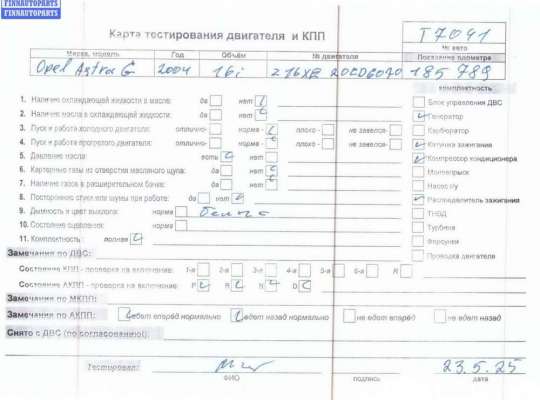 FINNAUTOPARTS
FINNAUTOPARTS
Карта тестирования двигателя и КПП
T7041
№ авто
Марка, модель Год Объём № двигателя Показание одометра
Opel Astra G 2004 16i 185 789
комплектность
1. Наличие охлаждающей жидкости в масле: да нет
2. Наличие масла в охлаждающей жидкости: да нет
3. Пуск и работа холодного двигателя: отлично- норма - плохо - не завелся-
4. Пуск и работа прогретого двигателя: отлично- норма - плохо - не завелся-
5. Давление масла: есть нет
6. Картерные газы из отверстия масляного щупа: да нет
7. Наличие газов в расширительном бачке: да нет
8. Посторонние стуки или шумы при работе: да нет
9. Дымность и цвет выхлопа: норма
10. Состояние сцепления: норма
11. Комплектность: полная
Блок управления ДВС
Генератор
Карбюратор
Катушка зажигания
Компрессор кондиционера
Моновпрыск
Насос г/у
Распределитель зажигания
ТНВД
Турбина
Форсунки
Проводка двигателя
Замечания по ДВС:
Состояние КПП - проверка на включение: 1-я 2-я 3-я 4-я 5-я 6-я R
Состояние АКПП - проверка на включение: P R N D
Замечания по МКПП:
Замечания по АКПП: едет вперёд нормально едет назад нормально не едет вперёд не едет назад
Снято с ДВС (по согласованию):
Тестировал: 23.5.25
ФИО подпись дата